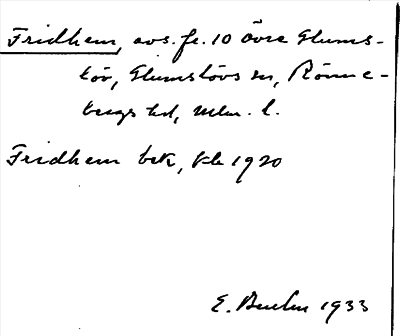 Fridhem, avs. fr. 10 Övre Glums-
löv, Glumslövs sn, Rönne-
bergs hd, Mlm. l.
Fridhem bek, Kb 1920
E. 1933